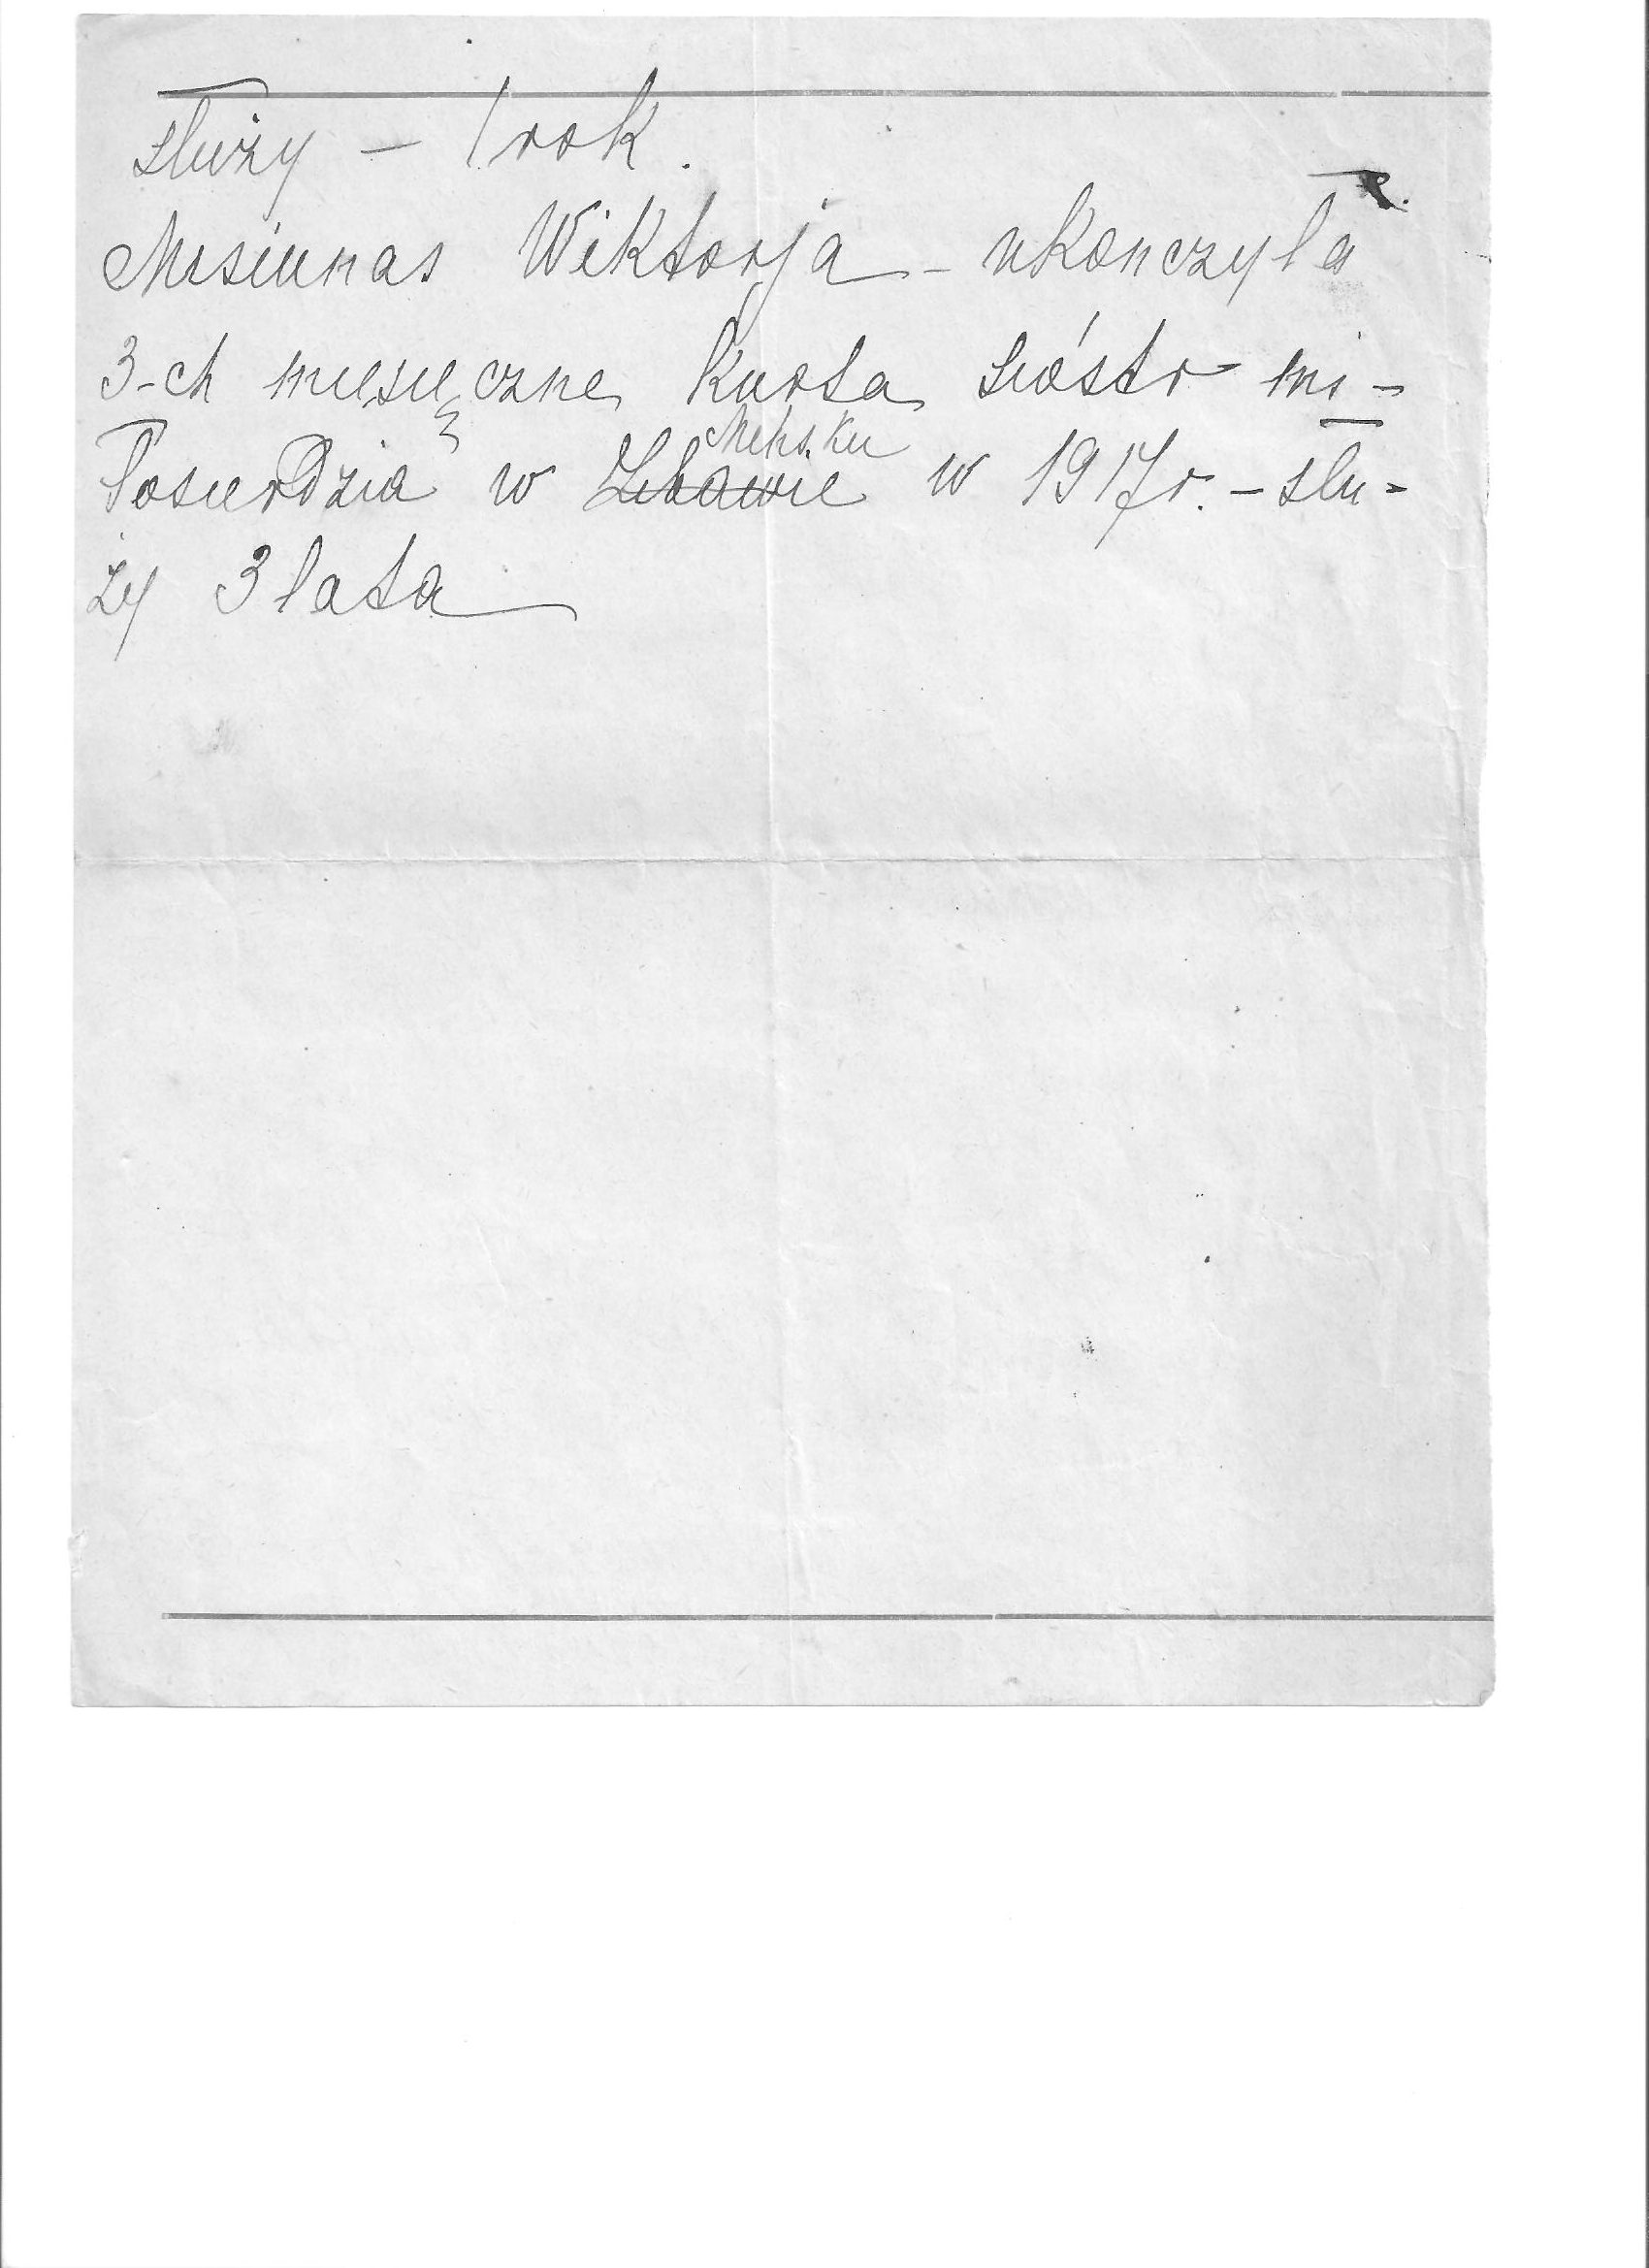 służy – 1 rok.
Misiunas Wiktorja – ukonczyła
3-ch miesięczne kursa sióstr mi-
łosierdzia w Libawie Mińsku w 1917 r. – słu-
ży 3 lata